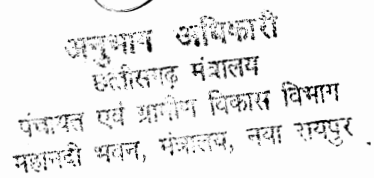 अनुभाग अधिकारी
छत्तीसगढ़ मंत्रालय
पंचायत एवं ग्रामीण विकास विभाग
महानदी भवन, मंत्रालय, नवा रायपुर .